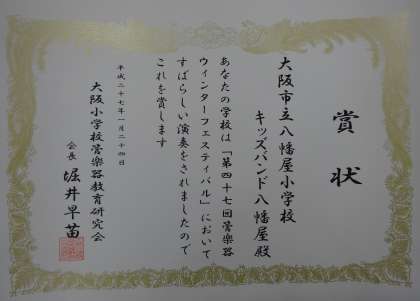 賞状
大阪市立八幡屋小学校
キッズバンド八幡屋殿
あなたの学校は「第四十七回管楽器
ウィンターフェスティバル」において
すばらしい演奏をされましたので
これを賞します
平成二十七年一月二十四日
大阪小学校管楽器教育研究会
会長 堀井早苗